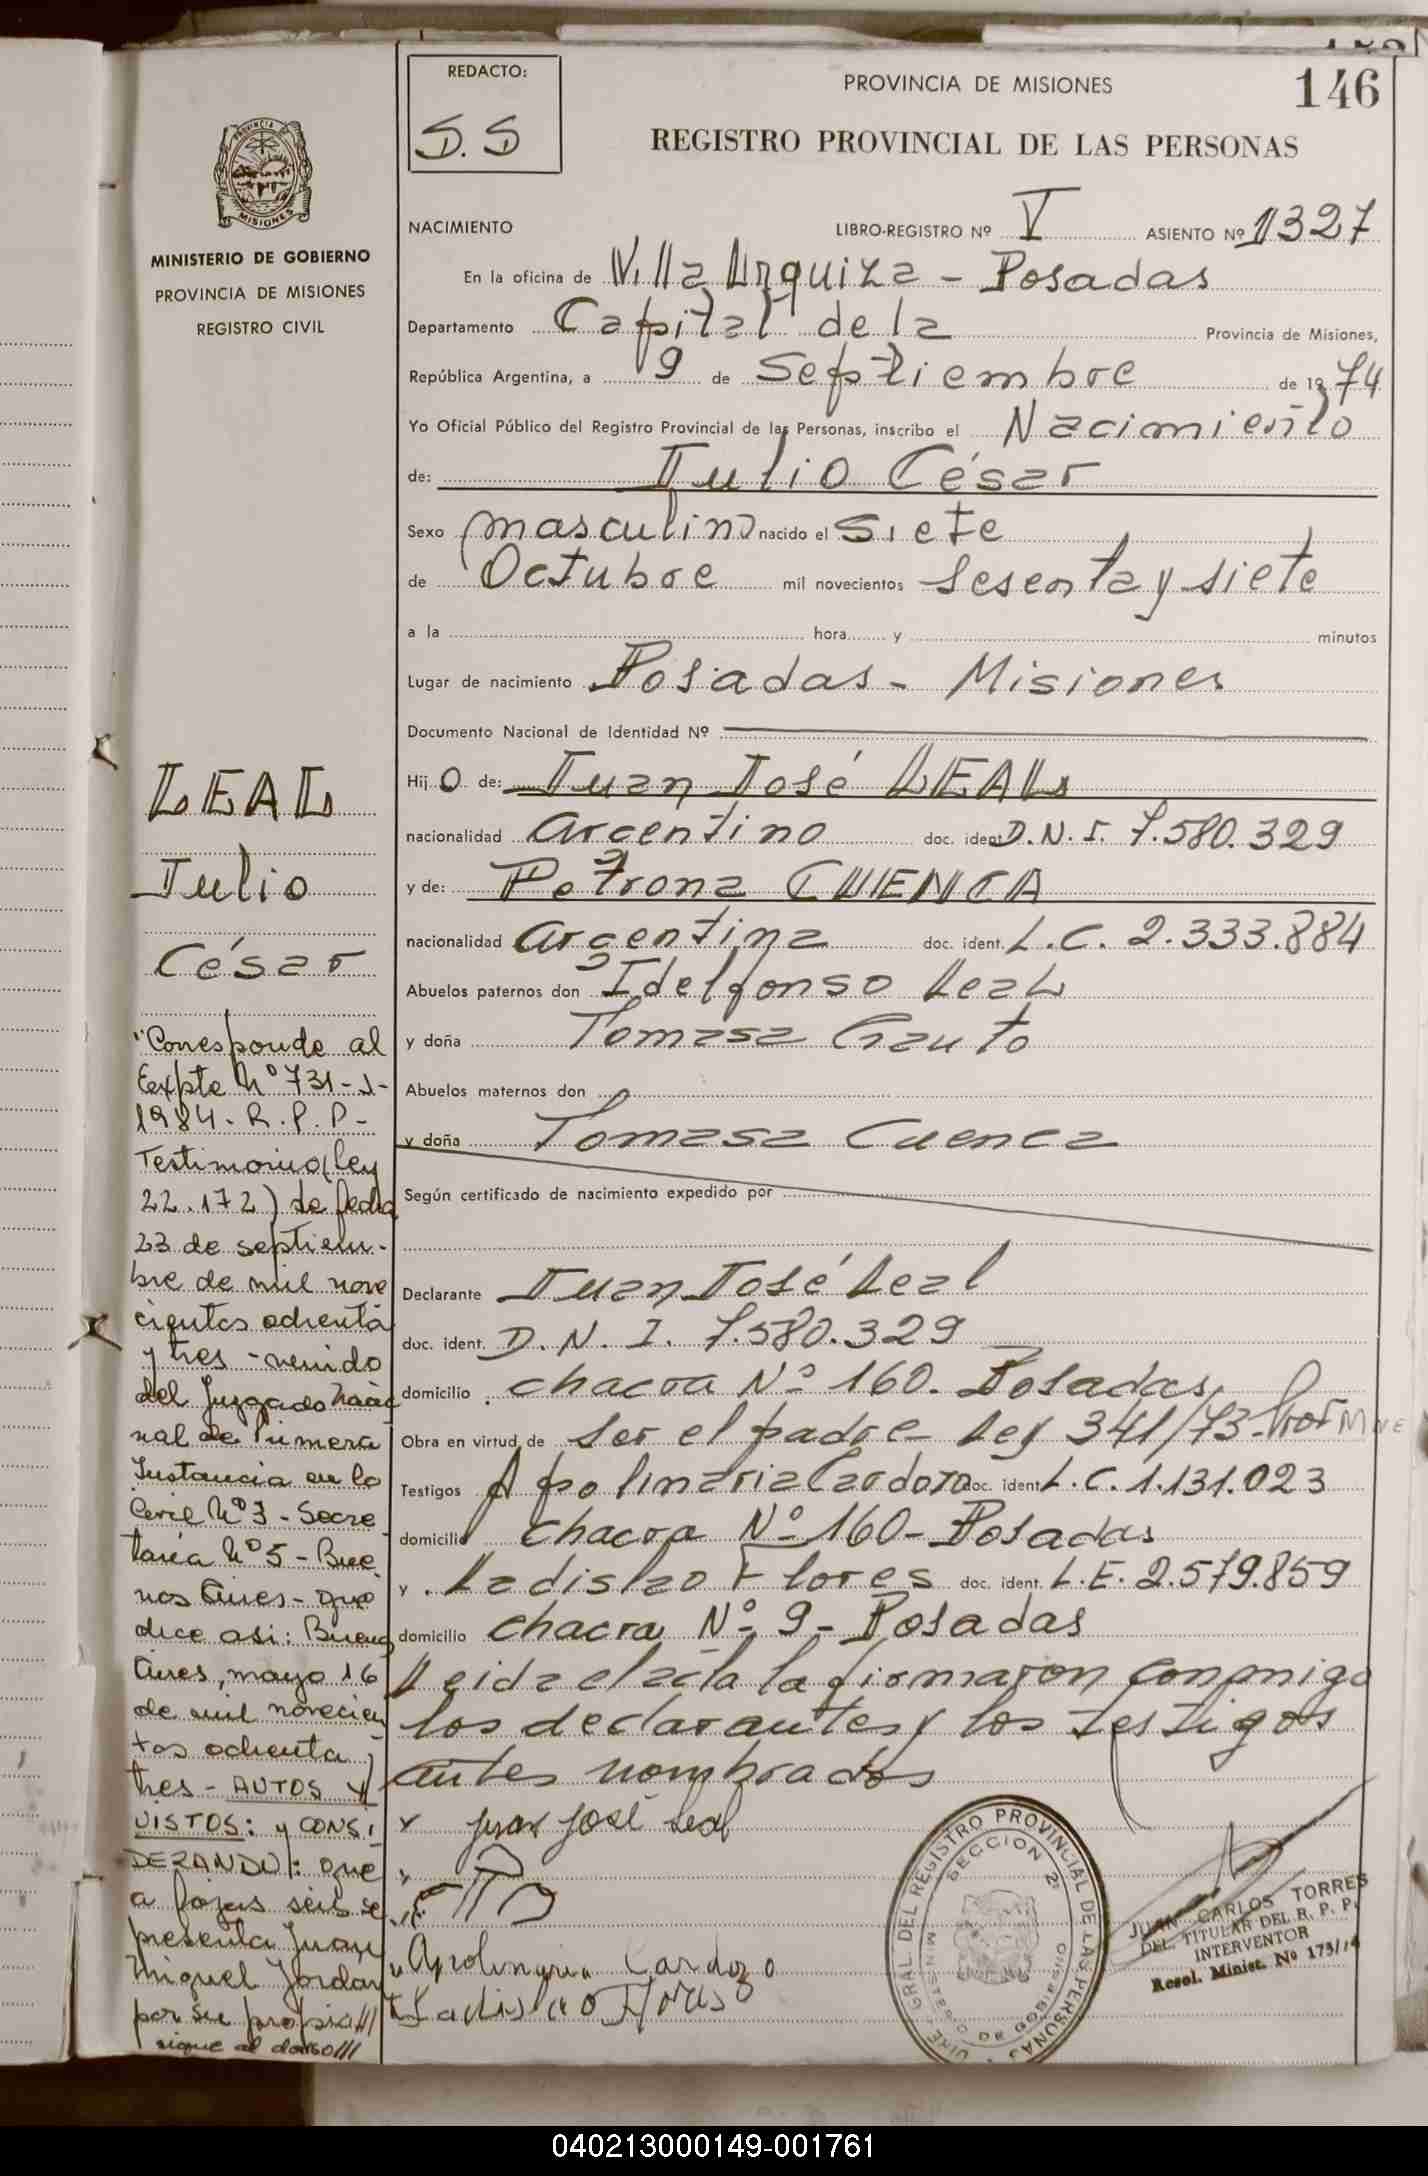 REDACTO:
S.S
PROVINCIA DE MISIONES
146
REGISTRO PROVINCIAL DE LAS PERSONAS
PROVINCIA DE
MISIONES
MINISTERIO DE GOBIERNO
PROVINCIA DE MISIONES
REGISTRO CIVIL
LEAL
Julio
César
"Corresponde al
Expte Nº 731-J-
1984-R.P.P-
Testimonio (ley
22.172) de fecha
23 de septiem-
bre de mil nove
cientos ochenta
y tres - venido
del Juzgado Nacio
nal de Primera
Instancia en lo
Civil Nº 3 - Secre
taría Nº 5 - Bue
nos Aires - que
dice asi: Buenos
Aires, mayo 16
de mil novecien
tos ochenta y
tres - AUTOS Y
VISTOS: y CONSI
DERANDO: que
a fojas seis se
presenta Juan
Miguel Jordan
por su propia///
sigue al dorso///
NACIMIENTO LIBRO-REGISTRO Nº V ASIENTO Nº 1327
En la oficina de Villa Urquiza - Posadas
Departamento Capital de la Provincia de Misiones,
República Argentina, a 9 de Septiembre de 1974
Yo Oficial Público del Registro Provincial de las Personas, inscribo el Nacimiento
de: Julio César
Sexo masculino nacido el siete
de Octubre mil novecientos sesenta y siete
a la hora y minutos
Lugar de nacimiento Posadas - Misiones
Documento Nacional de Identidad Nº
Hijo de: Juan José LEAL
nacionalidad argentino doc. ident. D.N.I. 7.580.329
y de: Petrona CUENCA
nacionalidad argentina doc. ident. L.C. 2.333.884
Abuelos paternos don Idelfonso Leal
y doña Tomasa Gauto
Abuelos maternos don
y doña Tomasa Cuenca
Según certificado de nacimiento expedido por
Declarante Juan José Leal
doc. ident. D.N.I. 7.580.329
domicilio chacra Nº 160. Posadas
Obra en virtud de ser el padre Ley 341/73-
Testigos Apolinaria Cardozo doc. ident. L.C. 1.131.023
domicilio chacra Nº 160 - Posadas
y Ladislao Flores doc. ident. L.E. 2.579.859
domicilio chacra Nº 9 - Posadas
Leida el acta la firmaron conmigo
los declarantes y los testigos
antes nombrados
Juan José Leal
Apolinaria Cardozo
Ladislao Flores
GRAL. DEL REGISTRO PROVINCIAL DE LAS PERSONAS
SECCION 2ª
MINISTERIO DE GOBIERNO
JUAN CARLOS TORRES
DEL. TITULAR DEL R. P. P.
INTERVENTOR
Resol. Minist. Nº 173/74
040213000149-001761